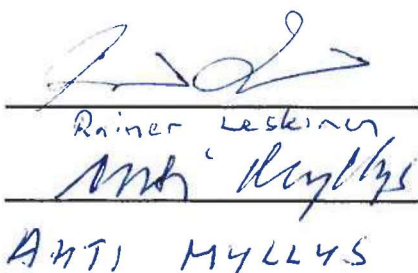 Rainer Leskinen
Ahti Myllys
AHTI MYLLYS